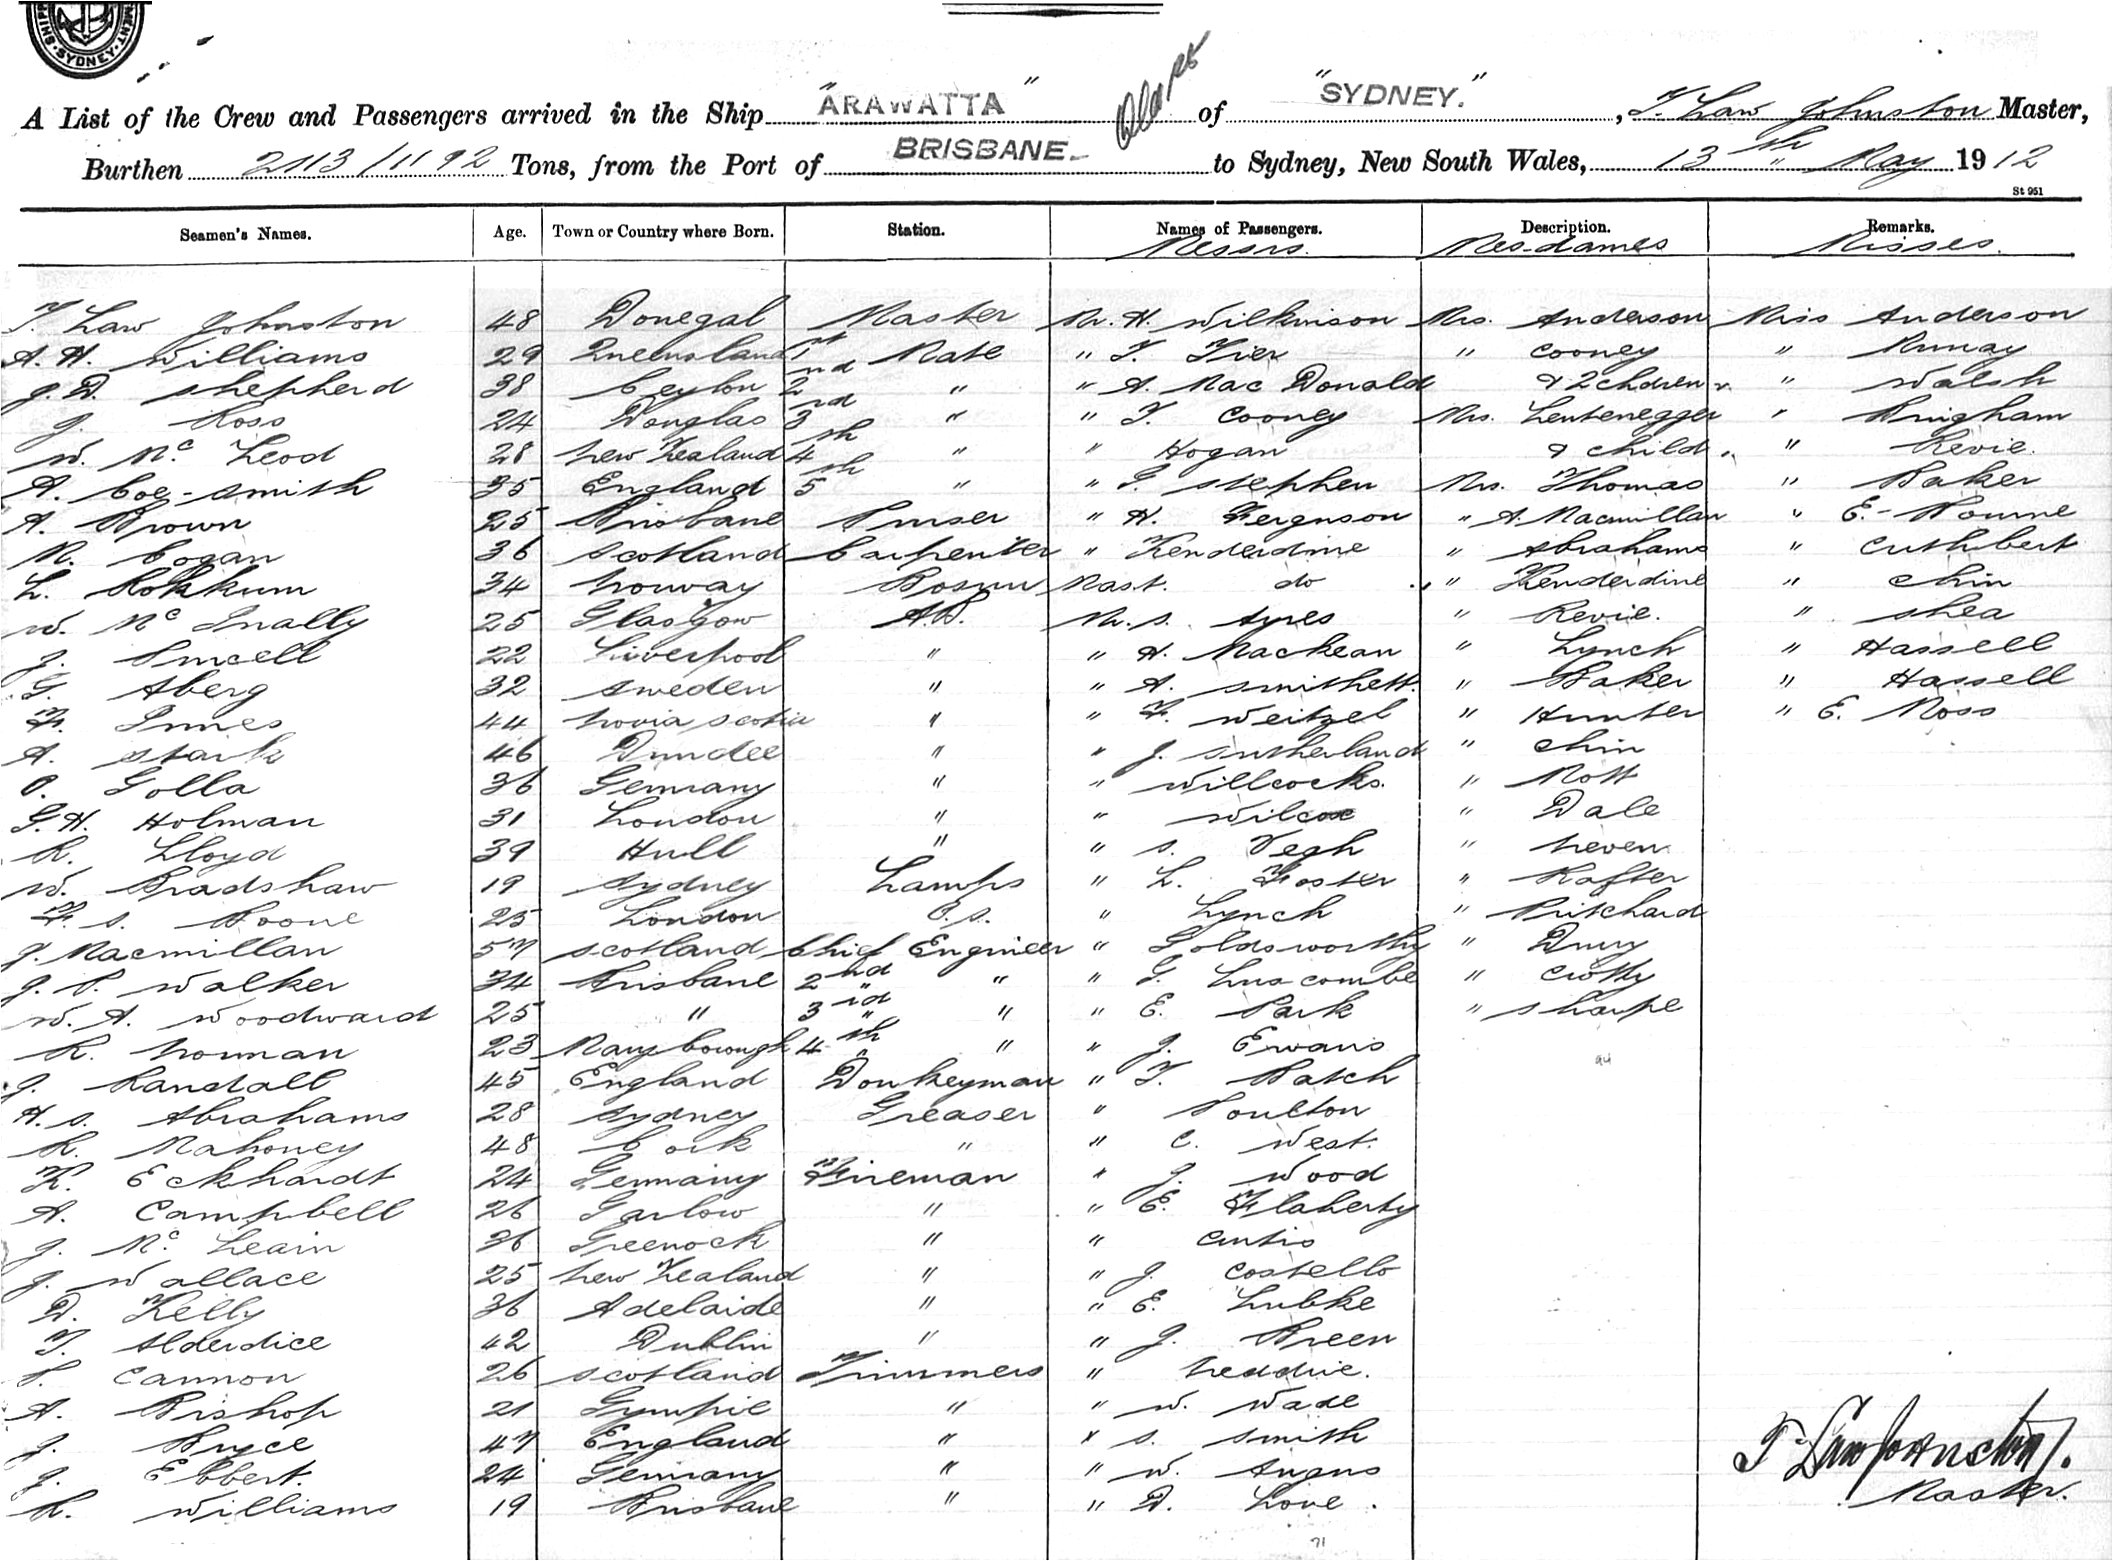 SYDNEY
A List of the Crew and Passengers arrived in the Ship "ARAWATTA" of "SYDNEY.", T. Law Johnston Master,
Burthen 2113/1192 Tons, from the Port of BRISBANE- to Sydney, New South Wales, 13th May 1912
St 951
Seamen's Names. Age. Town or Country where Born. Station. Names of Passengers. Description. Remarks.
Messrs. Mes-dames Misses.
T. Law Johnston 48 Donegal Master Mr. H. Wilkinson Mrs. Anderson Miss Anderson
A. H. Williams 29 Queensland 1st Mate " T. Tier " Cooney "
J. D. Shepherd 38 Ceylon 2nd " " A. Mac Donald & 2 chdren " Walsh
J. Ross 24 Douglas 3rd " " T. Cooney Mrs. Leutenegger " Bingham
W. Mc Leod 28 New Zealand 4th " " Hogan & child. " Revie.
A. Coe-Smith 35 England 5th " " G. Stephen Mrs. Thomas " Baker
A. Brown 25 Brisbane Purser " H. Ferguson " A. Macmillan " E.- Bourne
M. Cogan 36 Scotland Carpenter " Kenderdine " Abrahams " Cuthbert
L. Rokkum 34 Norway Bosun Mast. do " Kenderdine " Chin
W. Mc Inally 25 Glasgow A.B. Mr. S. Ayres " Revie. " Shea
J. Purcell 22 Liverpool " " H. Mackean " Lynch " Hassell
G. Aberg 32 Sweden " " A. Smithett. " Baker " Hassell
F. Innes 44 Novia Scotia " " F. Weitzel " Hunter " E. Moss
A. Stark 46 Dundee " " J. Sutherland " Chin
O. Golla 36 Germany " " Willcocks. " Nott
G. H. Holman 31 London " " Wilcox " Dale
R. Lloyd 39 Hull " " S. Vegh " Neven
W. Bradshaw 19 Sydney Lamps " L. Foster " Rafter
F. S. Boone 25 London O.S. " Lynch " Pritchard
J. Macmillan 57 Scotland Chief Engineer " Goldsworthy " Drury
J. P. Walker 34 Brisbane 2nd " " G. Luscombe " Crotty
W. A. Woodward 25 " 3rd " " E. Park " Sharpe
R. Norman 23 Maryborough 4th " " J. Ewans
J. Randall 45 England Donkeyman " T. Batch
H. S. Abrahams 28 Sydney Greaser " Poulton
R. Mahoney 48 Cork " " C. West.
K. Eckhardt 24 Germany Fireman " J. Wood
A. Campbell 26 Garlow " " E. Flaherty
J. Mc Leain 36 Greenock " " Curtis
J. Wallace 25 New Zealand " " J. Costello
D. Kelly 36 Adelaide " " E. Lubke
T. Alderdice 42 Dublin " " J. Breen
P. Cannon 26 Scotland Trimmers " Neddrie.
A. Bishop 21 Gympie " " W. Wade
J. Bryce 47 England " " S. Smith
J. Ebbert. 24 Germany " " W. Angus
R. Williams 19 Brisbane " " D. Love.
T. Law Johnston.
Master.
71